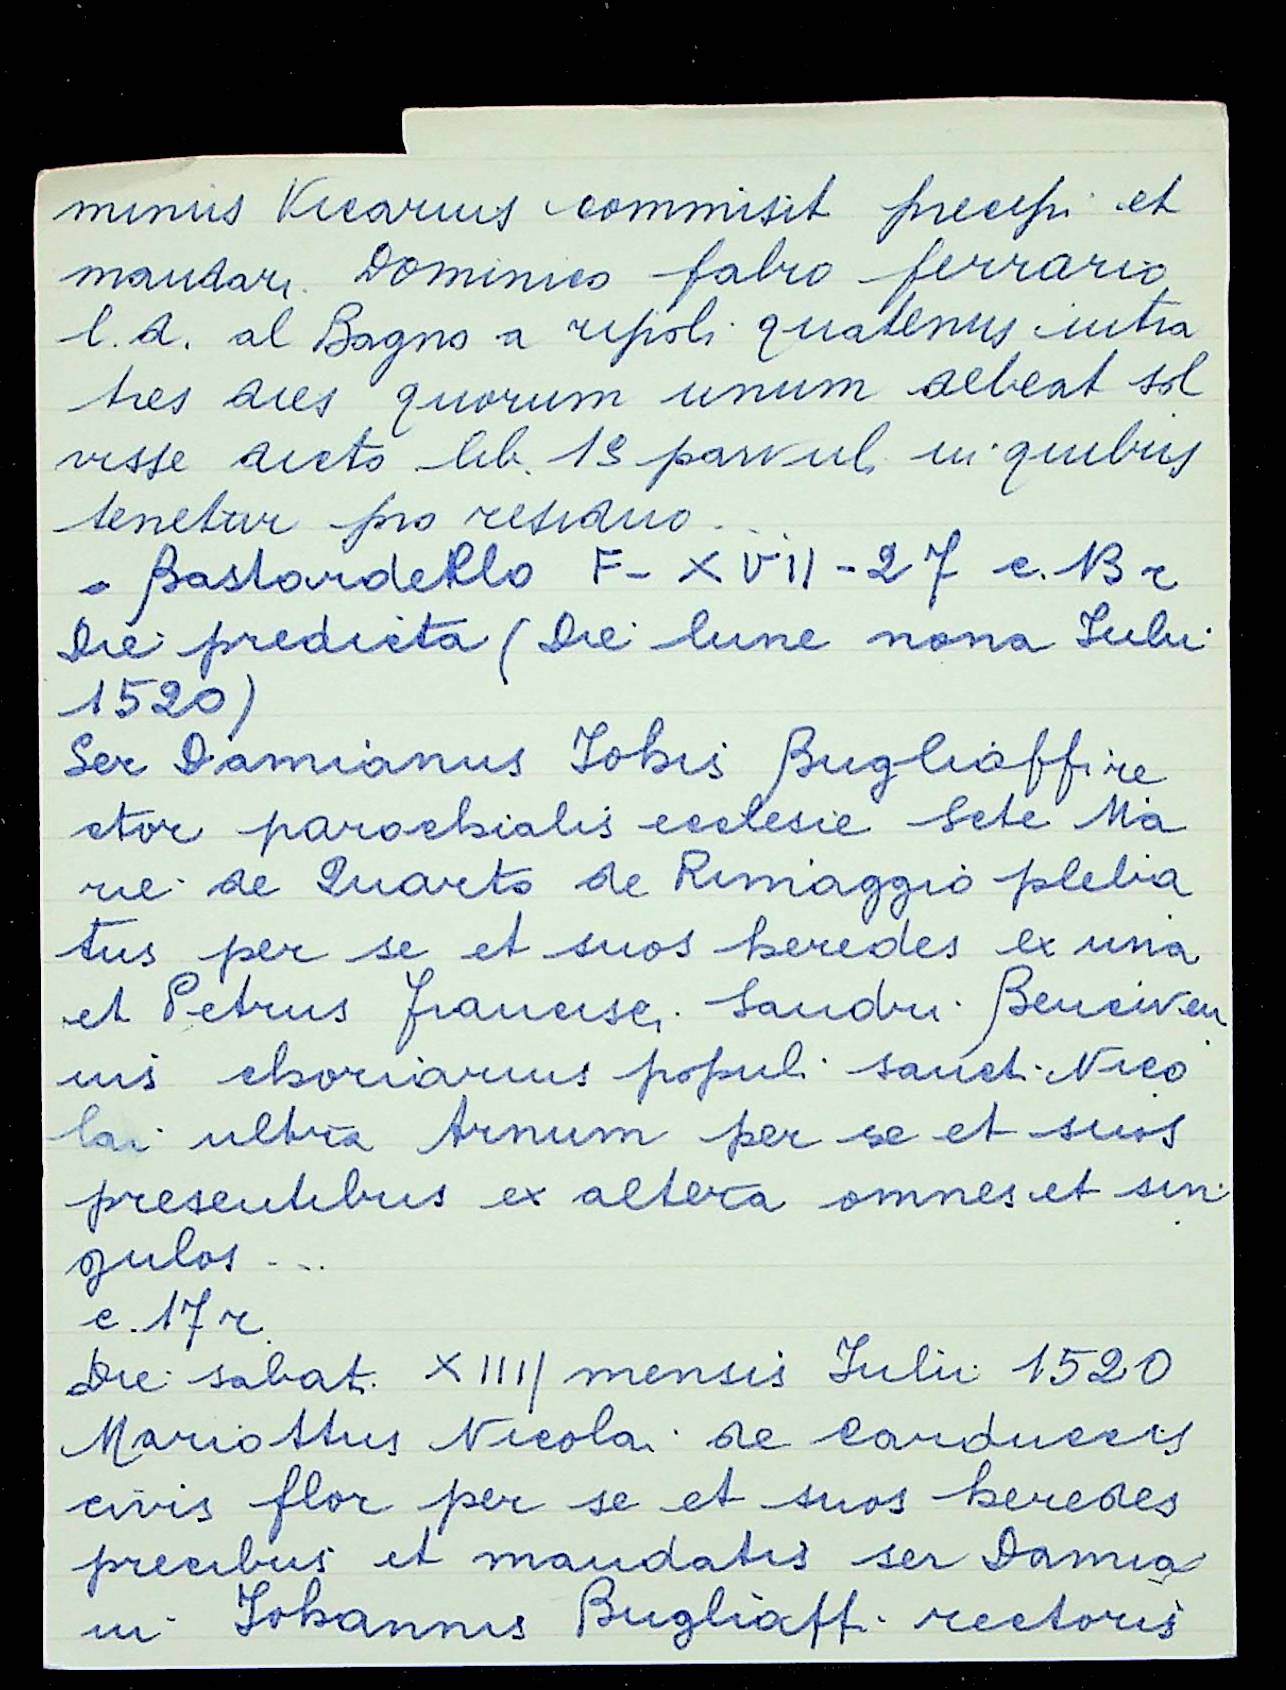 minus Vicarius commisit precipi et
mandari Dominico fabro ferrario
l. d. al Bagno a ripoli quatenus intra
tres dies quorum unum debeat sol
visse dicto lib. 19 parvul. in quibus
tenetur pro residuo...
- Bastardello F- XVII - 27 c. 13 r
Die predicta (Die lune nona Iulii
1520)
Ser Damianus Iohis Bugliaffi re
ctor parochialis ecclesie Scte Ma
rie de Quarto de Rimaggio plebia
tus per se et suos heredes ex una
et Petrus Francisci Sandri Benciven
nis choriarius populi sancti Nico
lai ultra Arnum per se et suos
presentibus ex altera omnes et sin
gulos ...
c. 17 r.
Die sabati XIIII mensis Iulii 1520
Mariottus Nicolai de Carduccis
civis flor per se et suos heredes
precibus et mandatis ser Damia
ni Iohannis Bugliaffi rectoris